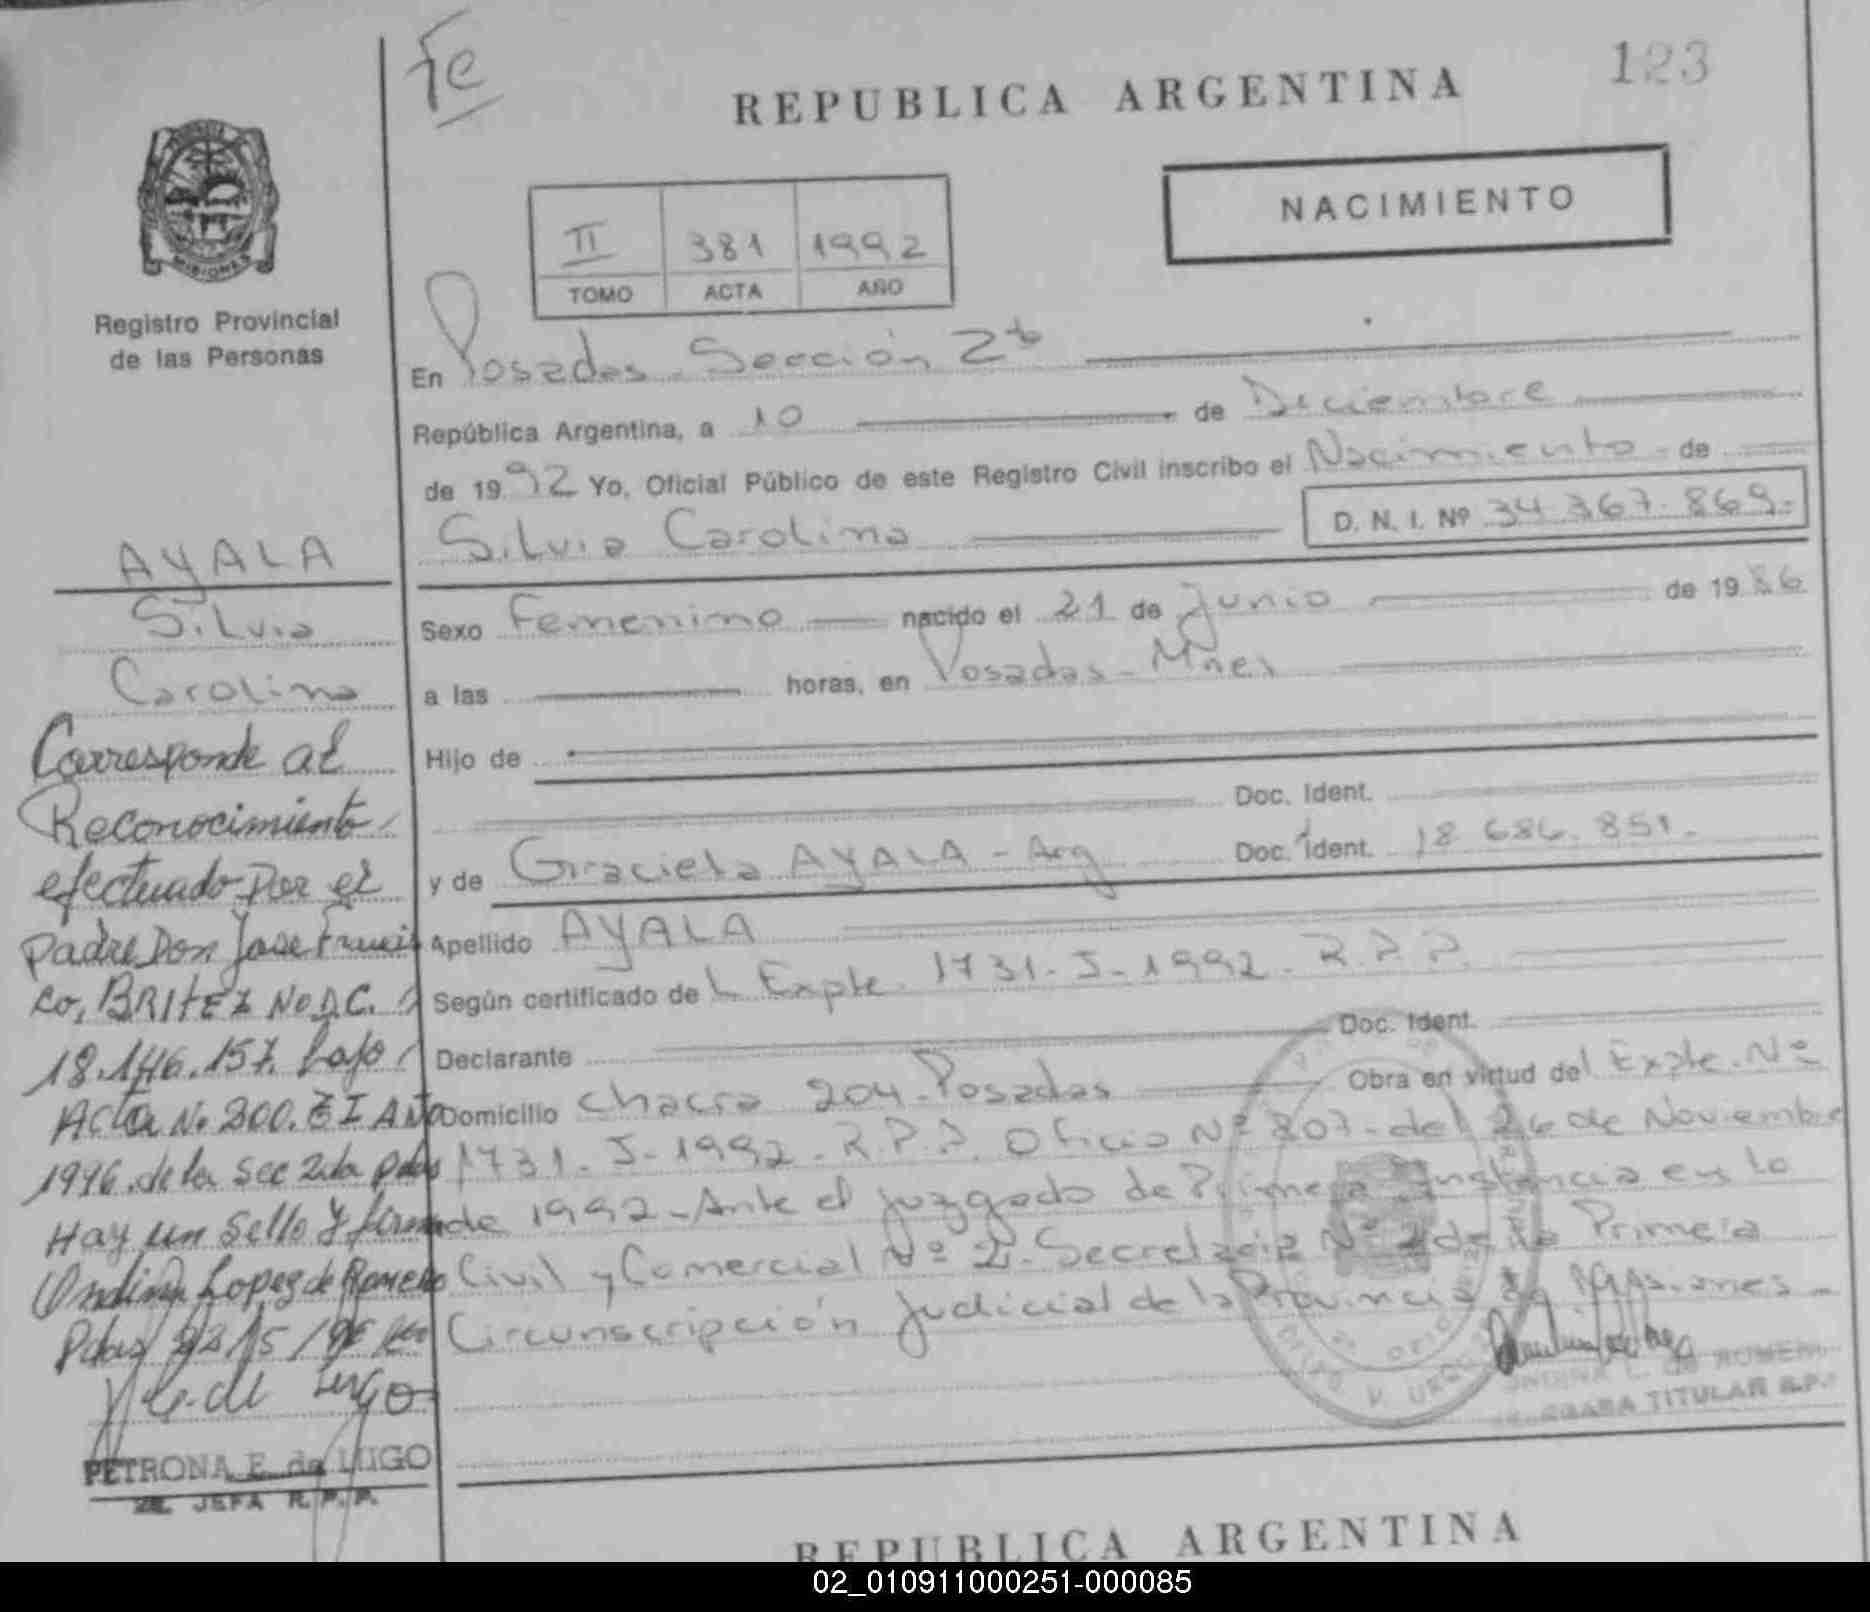 Fe
REPUBLICA ARGENTINA
123
NACIMIENTO
II 381 1992
TOMO ACTA AÑO
MISIONES
Registro Provincial
de las Personas
En Posadas Sección 2ª
República Argentina, a 10 de Diciembre
de 1992 Yo, Oficial Público de este Registro Civil inscribo el Nacimiento de
Silvia Carolina D. N. I. Nº 34.367.869.-
Sexo Femenino nacido el 21 de Junio de 1986
a las horas, en Posadas - Mnes
Hijo de
Doc. Ident.
y de Graciela AYALA - Arg Doc. Ident. 18.686.851.-
Apellido AYALA
Según certificado de L Expte. 1731-J-1992. R.P.P.
Declarante Doc. Ident.
Domicilio chacra 204 - Posadas Obra en virtud del Expte. Nº
1731-J-1992-R.P.P. Oficio Nº 807-del 26 de Noviembre
de 1992-Ante el Juzgado de Primera Instancia en lo
Civil y Comercial Nº 2. Secretaria Nº 2 de la Primera
Circunscripción Judicial de la Provincia de Misiones-
TITULAR R.P.
AYALA
Silvia
Carolina
Corresponde al
Reconocimiento
efectuado por el
padre Don Jose Francis
co, BRITEZ
18.146.157. bajo
Acta Nº 300. AÑO
1996. de la Sec 2da Pdas
Hay un Sello y firma
Ondina Lopez de Romero
Pdas
de Lugo
PETRONA E. de LUGO
JEFA R.P.P.
REPUBLICA ARGENTINA
02_010911000251-000085